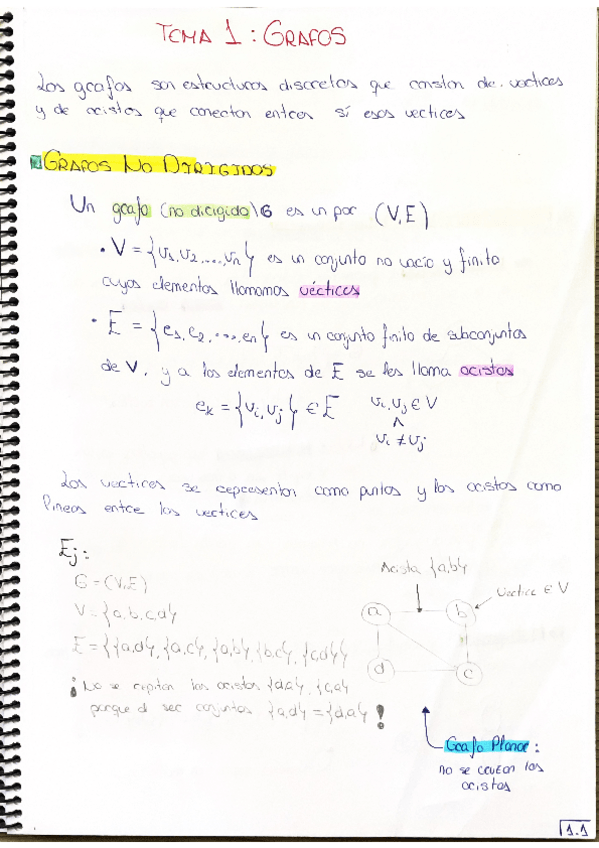 TEMA 1: GRAFOS
Los grafos son estructuras discretas que constan de vertices
y de aristas que conectan entre sí esos vertices
GRAFOS NO DIRIGIDOS
Un grafo (no dirigido) G es un par (V,E)
• V = {v₁,v₂,...,vₙ} es un conjunto no vacío y finito
cuyos elementos llamamos vértices
• E = {e₁,e₂,...,eₙ} es un conjunto finito de subconjuntos
de V, y a los elementos de E se les llama aristas
eₖ = {vᵢ,vⱼ} ∈ E vᵢ,vⱼ ∈ V
∧
vᵢ ≠ vⱼ
Los vertices se representan como puntos y las aristas como
líneas entre los vertices
Ej:
G = (V,E)
V = {a,b,c,d}
E = {{a,d}, {a,c}, {a,b}, {b,c}, {c,d}}
¡No se repiten las aristas {d,a}, {c,a}
porque al ser conjuntos {a,d} = {d,a}!
Arista {a,b}
Vertice ∈ V
a
b
d
c
Grafo Planar:
no se cruzan las
aristas
1.1